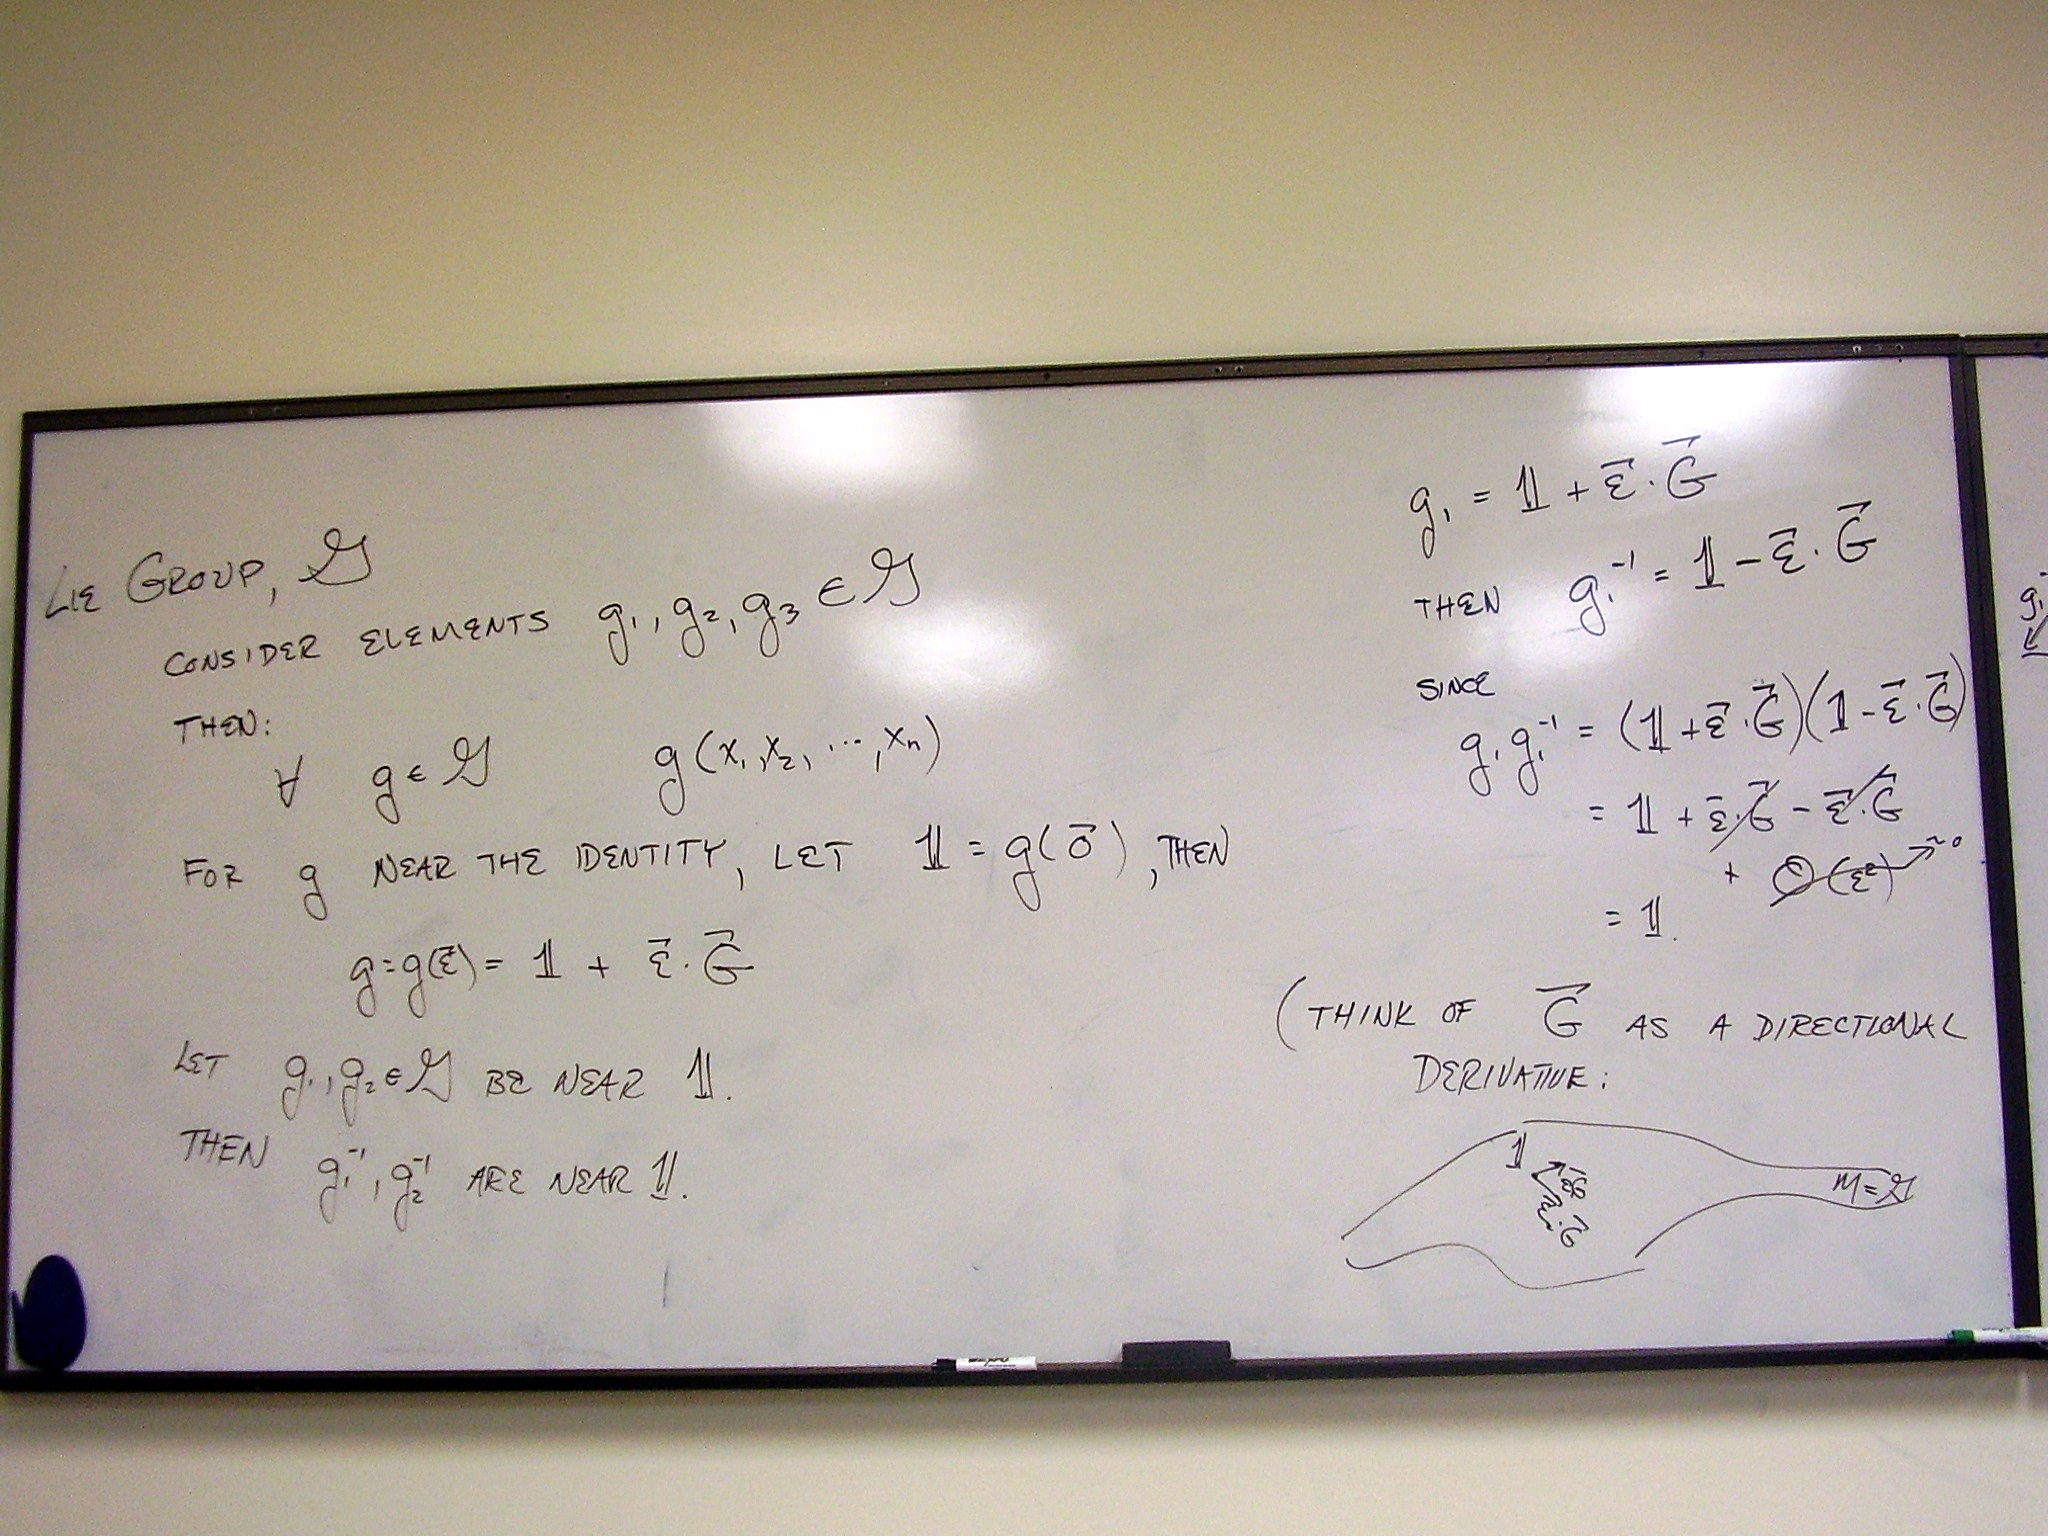 LIE GROUP, 𝒢
CONSIDER ELEMENTS g₁, g₂, g₃ ∈ 𝒢
THEN:
∀ g ∈ 𝒢 g(x₁, x₂, ⋯, xₙ)
FOR g NEAR THE IDENTITY, LET 𝟙 = g(0⃗), THEN
g = g(ε⃗) = 𝟙 + ε⃗ · G⃗
LET g₁, g₂ ∈ 𝒢 BE NEAR 𝟙.
THEN g₁⁻¹, g₂⁻¹ ARE NEAR 𝟙.
g₁ = 𝟙 + ε⃗ · G⃗
THEN g₁⁻¹ = 𝟙 − ε⃗ · G⃗
SINCE
g₁ g₁⁻¹ = (𝟙 + ε⃗ · G⃗)(𝟙 − ε⃗ · G⃗)
= 𝟙 + ε⃗ · G⃗ − ε⃗ · G⃗
+ O(ε²) → ~0
= 𝟙.
(THINK OF G⃗ AS A DIRECTIONAL
DERIVATIVE:
𝟙
ε⃗ · G⃗
M = 𝒢
g₁⁻